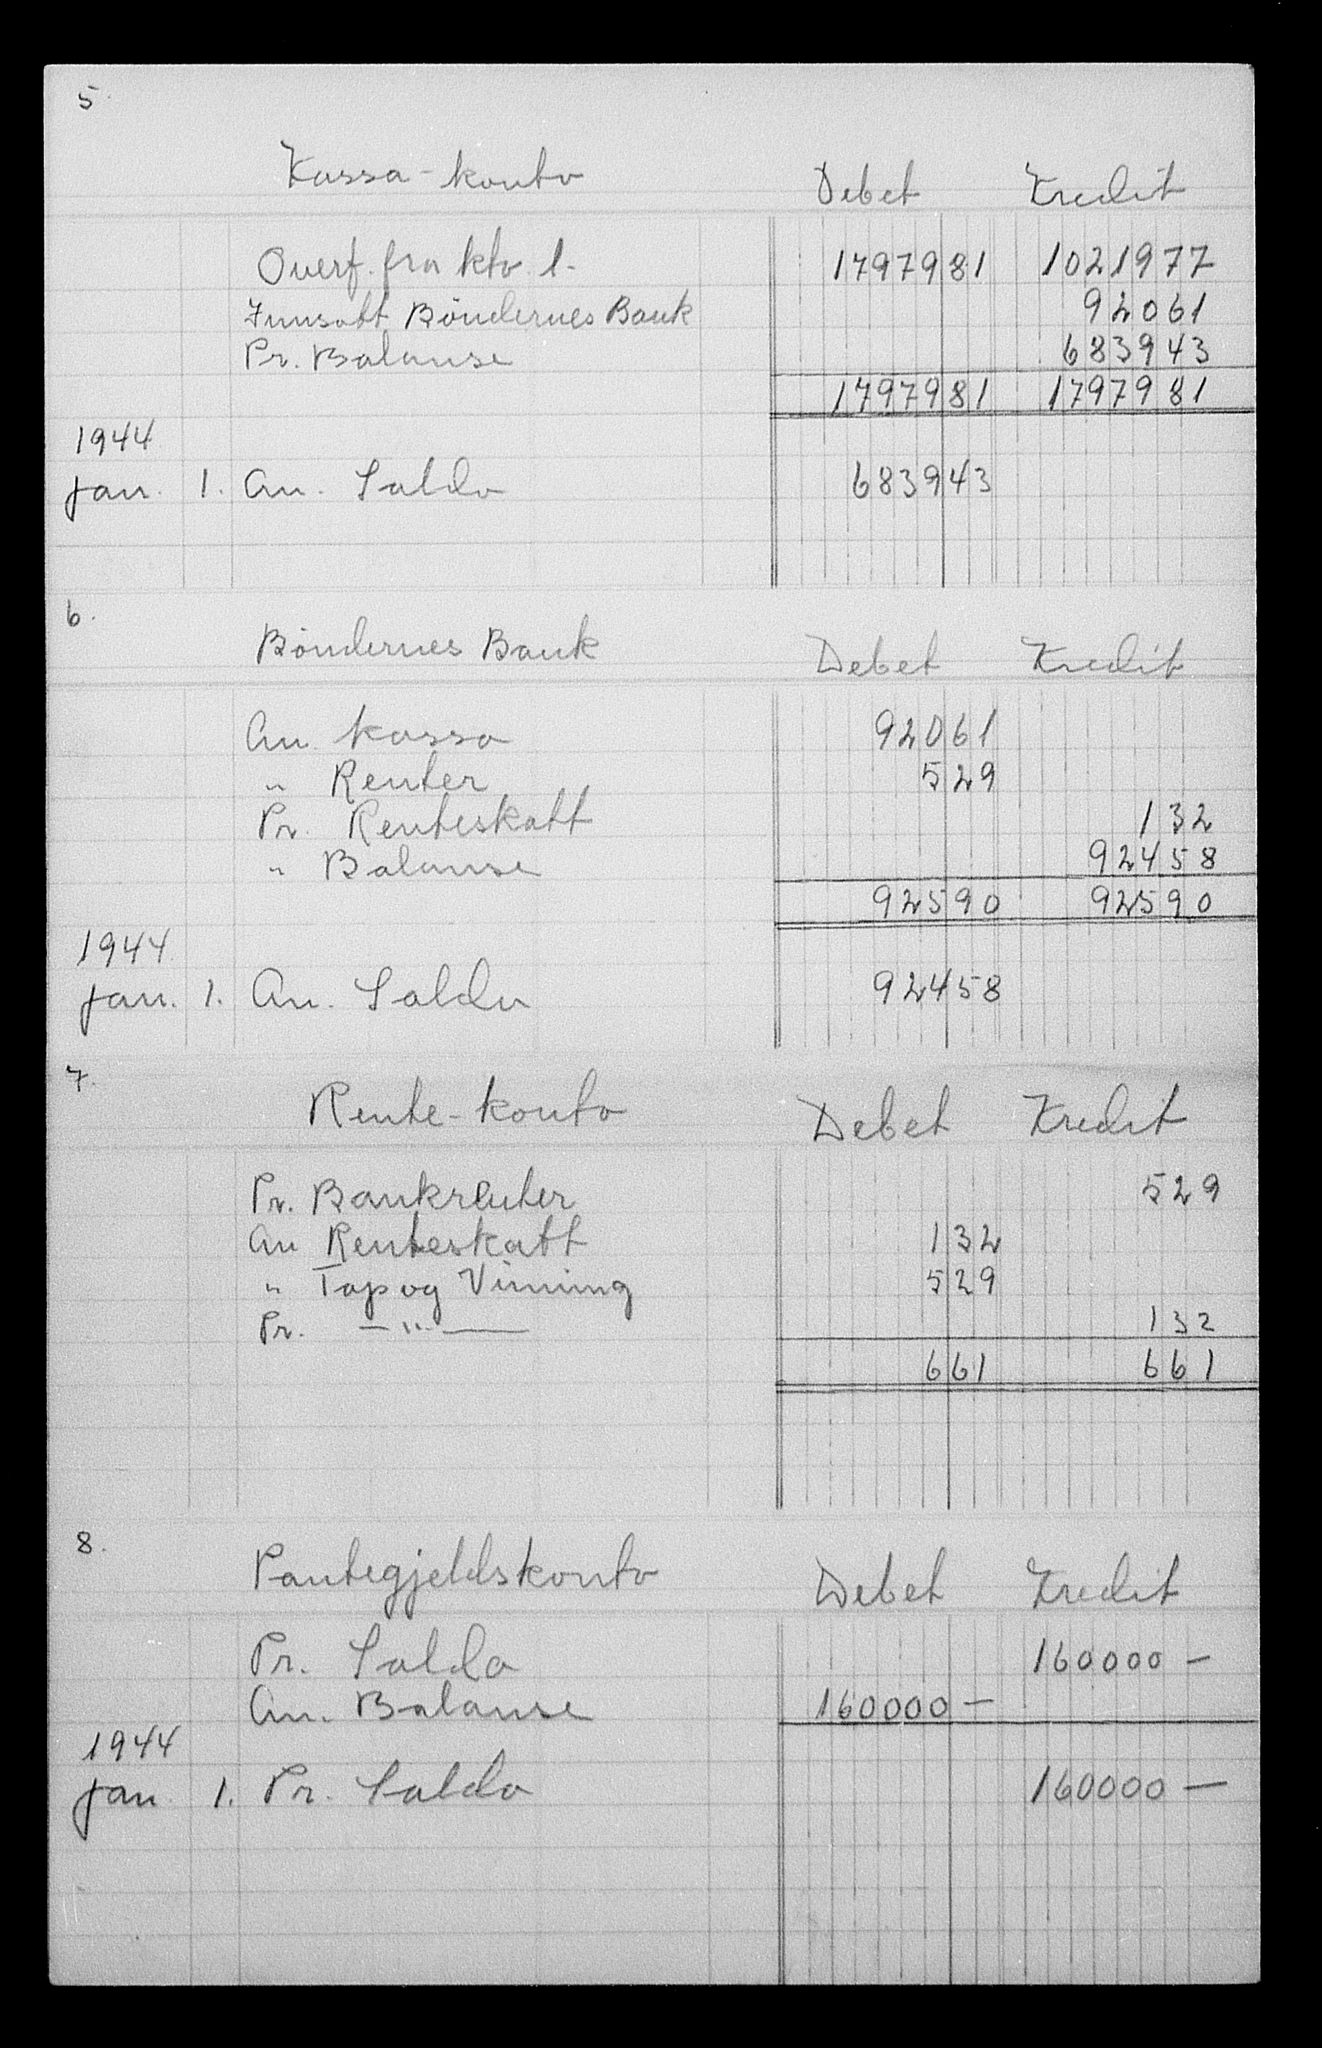 5.
Kassa-konto Debet Kredit
Overf. fra kto. 1. 1797981 1021977
Innsatt Bøndernes Bank 92061
Pr. Balanse 683943
1797981 1797981
1944
jan. 1. An. Saldo 683943
6.
Bøndernes Bank Debet Kredit
An. kassa 92061
" Renter 529
Pr. Renteskatt 132
" Balanse 92458
92590 92590
1944
jan. 1. An. Saldo 92458
7.
Rente-konto Debet Kredit
Pr. Bankrenter 529
An Renteskatt 132
" Tap og Vinning 529
Pr. —"— 132
661 661
8.
Pantegjeldskonto Debet Kredit
Pr. Saldo 160000 —
An. Balanse 160000 —
1944
jan 1. Pr. Saldo 160000 —